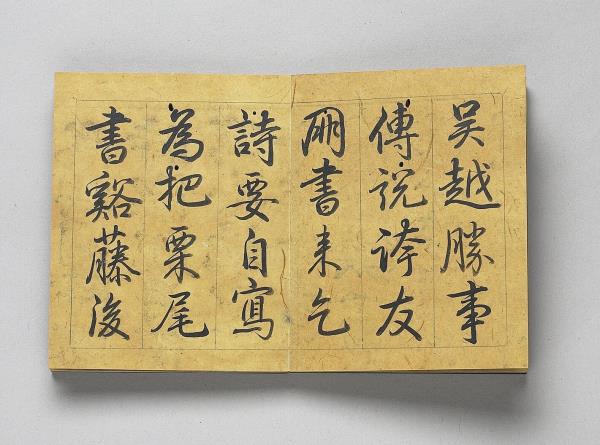 吳越勝事
傳說誇友
朋書来乞
詩要自寫
為把栗尾
書谿藤後